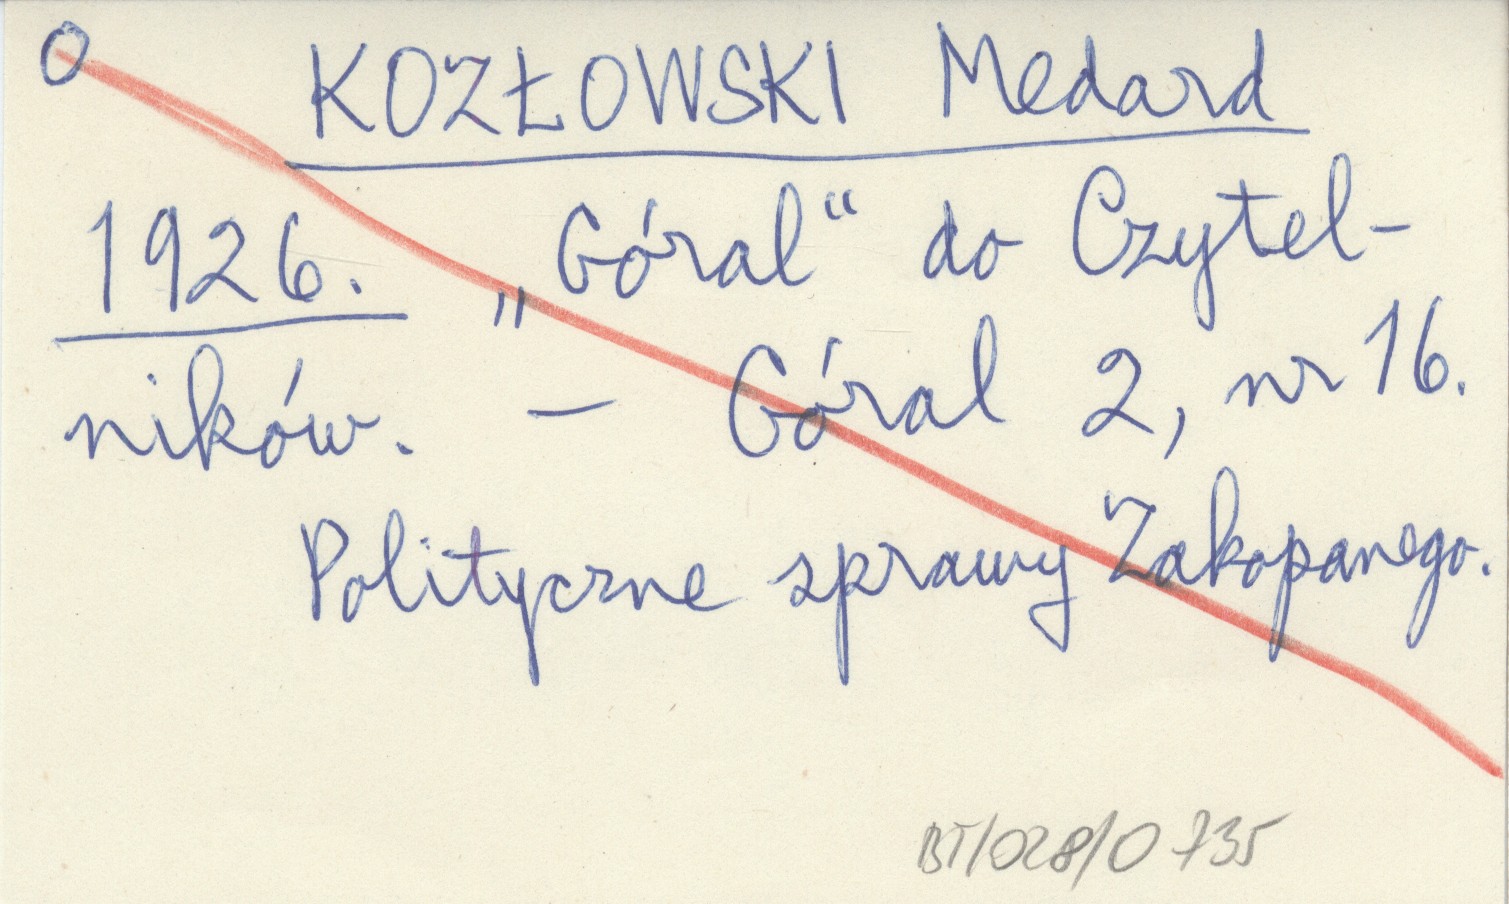 O
KOZŁOWSKI Medard
1926. „Góral“ do Czytel-
ników. – Góral 2, nr 16.
Polityczne sprawy Zakopanego.
BT/028/0735